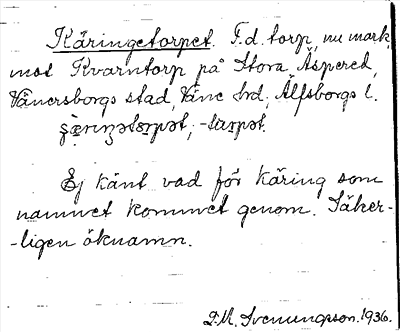 Käringetorpet. F.d. torp, nu mark,
mot Kvarntorp på Stora Äspered,
Vänersborgs stad, Väne hrd, Älfsborgs l.
-tarpət.
Ej känt vad för käring som
namnet kommet genom. Säker-
-ligen öknamn.
D.M. Svenungsson. 1936.